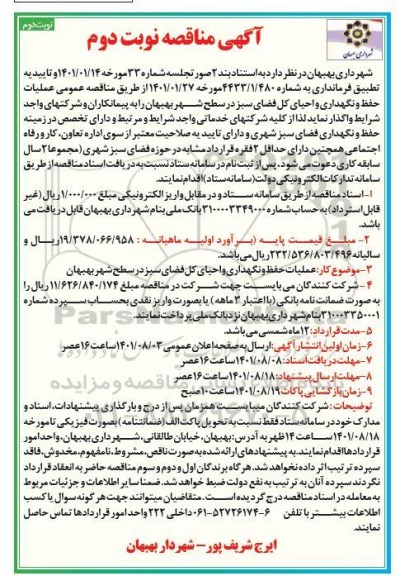 نوبت دوم
آگهی مناقصه نوبت دوم
شهرداری بهبهان
شهرداری بهبهان در نظر دارد به استناد بند ۲ صورتجلسه شماره ۳۳ مورخه ۱۴۰۱/۰۱/۱۴ و تایید به
تطبیق فرمانداری به شماره ۴۴۳۳/۱/۴۸۰ مورخه ۱۴۰۱/۰۱/۲۷ از طریق مناقصه عمومی عملیات
حفظ و نگهداری و احیای کل فضای سبز در سطح شهر بهبهان را به پیمانکاران و شرکتهای واجد
شرایط واگذار نماید لذا از کلیه شرکتهای خدماتی واجد شرایط و مرتبط و دارای تخصص در زمینه
حفظ و نگهداری فضای سبز شهری و دارای تایید یه صلاحیت معتبر از سوی اداره تعاون، کار و رفاه
اجتماعی همچنین دارای حداقل ۲ فقره قرارداد مشابه در حوزه فضای سبز شهری (مجموعا ۲ سال
سابقه کاری دعوت می شود، پس از ثبت نام در سامانه ستاد نسبت به دریافت اسناد مناقصه از طریق
سامانه تدارکات الکترونیکی دولت (سامانه ستاد) اقدام نمایند.
۱- اسناد مناقصه از طریق سامانه ستاد و در مقابل واریز الکترونیکی مبلغ ۱/۰۰۰/۰۰۰ ریال (غیر
قابل استرداد) به حساب شماره ۳۱۰۰۰۰۳۳۴۹۰۰۰ بانک ملی بنام شهرداری بهبهان قابل دریافت می
باشد.
۲- مبلغ قیمت پایه (برآورد اولیه ماهیانه: ۱۹/۳۷۸/۰۶۶/۹۵۸ ریال و
سالیانه ۲۳۲/۵۳۶/۸۰۳/۴۹۶ ریال می باشد.
۳- موضوع کار: عملیات حفظ و نگهداری و احیا کل فضای سبز در سطح شهر بهبهان
۴- شرکت کنندگان می بایست جهت شرکت در مناقصه مبلغ ۱۱/۶۲۶/۸۴۰/۱۷۴ ریال را
به صورت ضمانت نامه بانکی (با اعتبار ۳ ماهه) یا بصورت واریز نقدی بحساب سپرده شماره
۳۱۰۰۰۳۳۵۰۰۰۱ بنام شهرداری بهبهان نزد بانک ملی پرداخت نمایند.
۵- مدت قرارداد: ۱۲ ماه شمسی می باشد.
۶- زمان اولین انتشار آگهی: ارسال به صفحه اعلان عمومی ۱۴۰۱/۰۸/۰۳ ساعت ۱۶ عصر
۷- مهلت دریافت اسناد: ۱۴۰۱/۰۸/۰۸ ساعت ۱۶ عصر
۸- مهلت ارسال پیشنهاد: ۱۴۰۱/۰۸/۱۸ ساعت ۱۶ عصر
۹- زمان بازگشایی پاکات: ۱۴۰۱/۰۸/۱۹ ساعت ۱۰ صبح
توضیحات: شرکت کنندگان میبایست همزمان پس از درج و بارگذاری پیشنهادات، اسناد و
مدارک خود در سامانه ستاد فقط نسبت به تحویل پاکت الف (ضمانتنامه) بصورت فیزیکی تا مورخه
۱۴۰۱/۰۸/۱۸ ساعت ۱۴ ظهر به آدرس: بهبهان، خیابان طالقانی، شهرداری بهبهان، واحد امور
قراردادها اقدام نمایند. به پیشنهادهای ارائه شده به صورت ناقص، مشروط، نامفهوم، مخدوش، فاقد
سپرده ترتیب اثر داده نخواهد شد. هرگاه برندگان اول و دوم و سوم مناقصه حاضر به انعقاد قرارداد
نگردند سپرده آنان به ترتیب به نفع دولت ضبط خواهد شد. ضمنا سایر اطلاعات و جزئیات مربوط
به معامله در اسناد مناقصه درج گردیده است. متقاضیان میتوانند جهت هر گونه سوال یا کسب
اطلاعات بیشتر با تلفن ۶-۵۲۷۲۶۱۷۴-۰۶۱ داخلی ۲۲۲ واحد امور قراردادها تماس حاصل
نمایند.
ایرج شریف پور - شهردار بهبهان